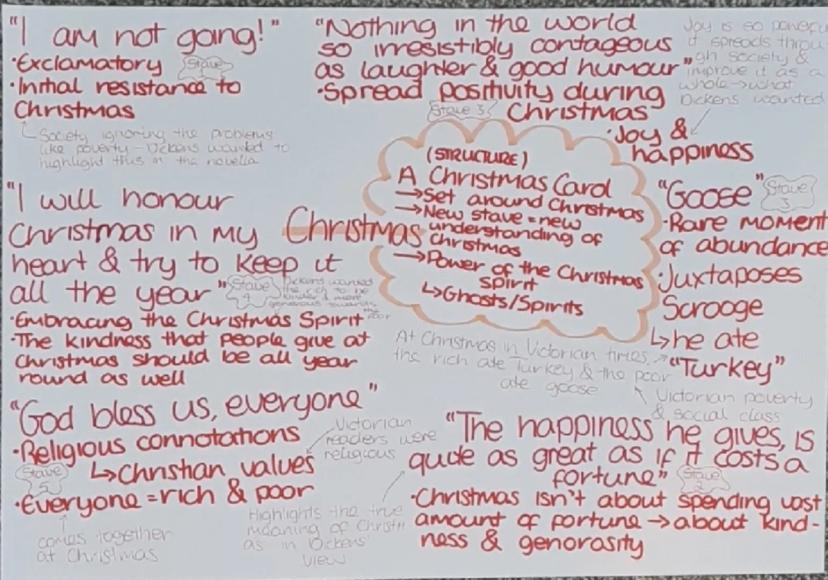 "I am not going!"
•Exclamatory
Stave
•Initial resistance to
Christmas
Society ignoring the problems
like poverty - Dickens wanted to
highlight this in the novella
"Nothing in the world
so irresistibly contageous
as laughter & good humour"
•Spread positivity during
Stave 3
Christmas
•Joy &
happiness
Joy is so powerful
it spreads throu
gh society &
improve it as a
whole → what
Dickens wanted
(STRUCTURE)
A Christmas Carol
→Set around Christmas
→New stave = new
understanding of
Christmas
→Power of the Christmas
spirit
↳Ghosts/Spirits
Christmas
"I will honour
Christmas in my
heart & try to keep it
all the year"
Stave
4
Dickens wanted
the rich to be
kinder & more
generous towards
the poor
•Embracing the Christmas Spirit
•The kindness that people give at
Christmas should be all year
round as well
"Goose"
Stave
3
•Rare moment
of abundance
•Juxtaposes
Scrooge
↳he ate
"Turkey"
At Christmas in Victorian times,
the rich ate Turkey & the poor
ate goose
Victorian poverty
& social class
"God bless us, everyone"
•Religious connotations
↳Christian values
Stave
5
•Everyone = rich & poor
comes together
at Christmas
Victorian
readers were
religious
"The happiness he gives, is
quite as great as if it costs a
fortune"
Stave
•Christmas isn't about spending vast
amount of fortune → about kind-
ness & generosity
Highlights the true
meaning of Christm
as in Dickens'
view